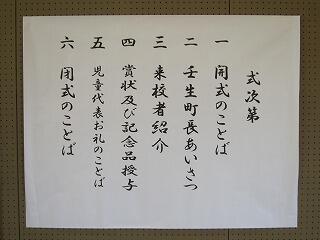 式次第
一 開式のことば
二 壬生町長あいさつ
三 来校者紹介
四 賞状及び記念品授与
五 児童代表お礼のことば
六 閉式のことば